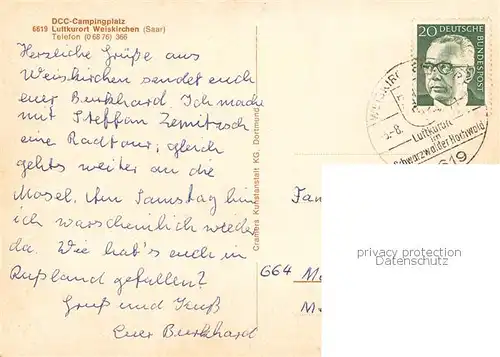 DCC-Campingplatz
6619 Luftkurort Weiskirchen (Saar)
Telefon (06876) 366
Herzliche Grüße aus
Weiskirchen sendet euch
euer Burkhard. Ich mache
mit Steffan
eine Radtour; gleich
gehts weiter an die
Mosel. Am Samstag bin
ich warscheinlich wieder
da. Wie hat's euch in
Rußland gefallen?
Gruß und Kuß
Euer Burkhard
Cramers Kunstanstalt KG. Dortmund
20 DEUTSCHE
BUNDESPOST
Luftkurort
im
Schwarzwälder Hochwald
6619
Fam
664 Me
M
privacy protection
for AnsichtskartenVersand.com